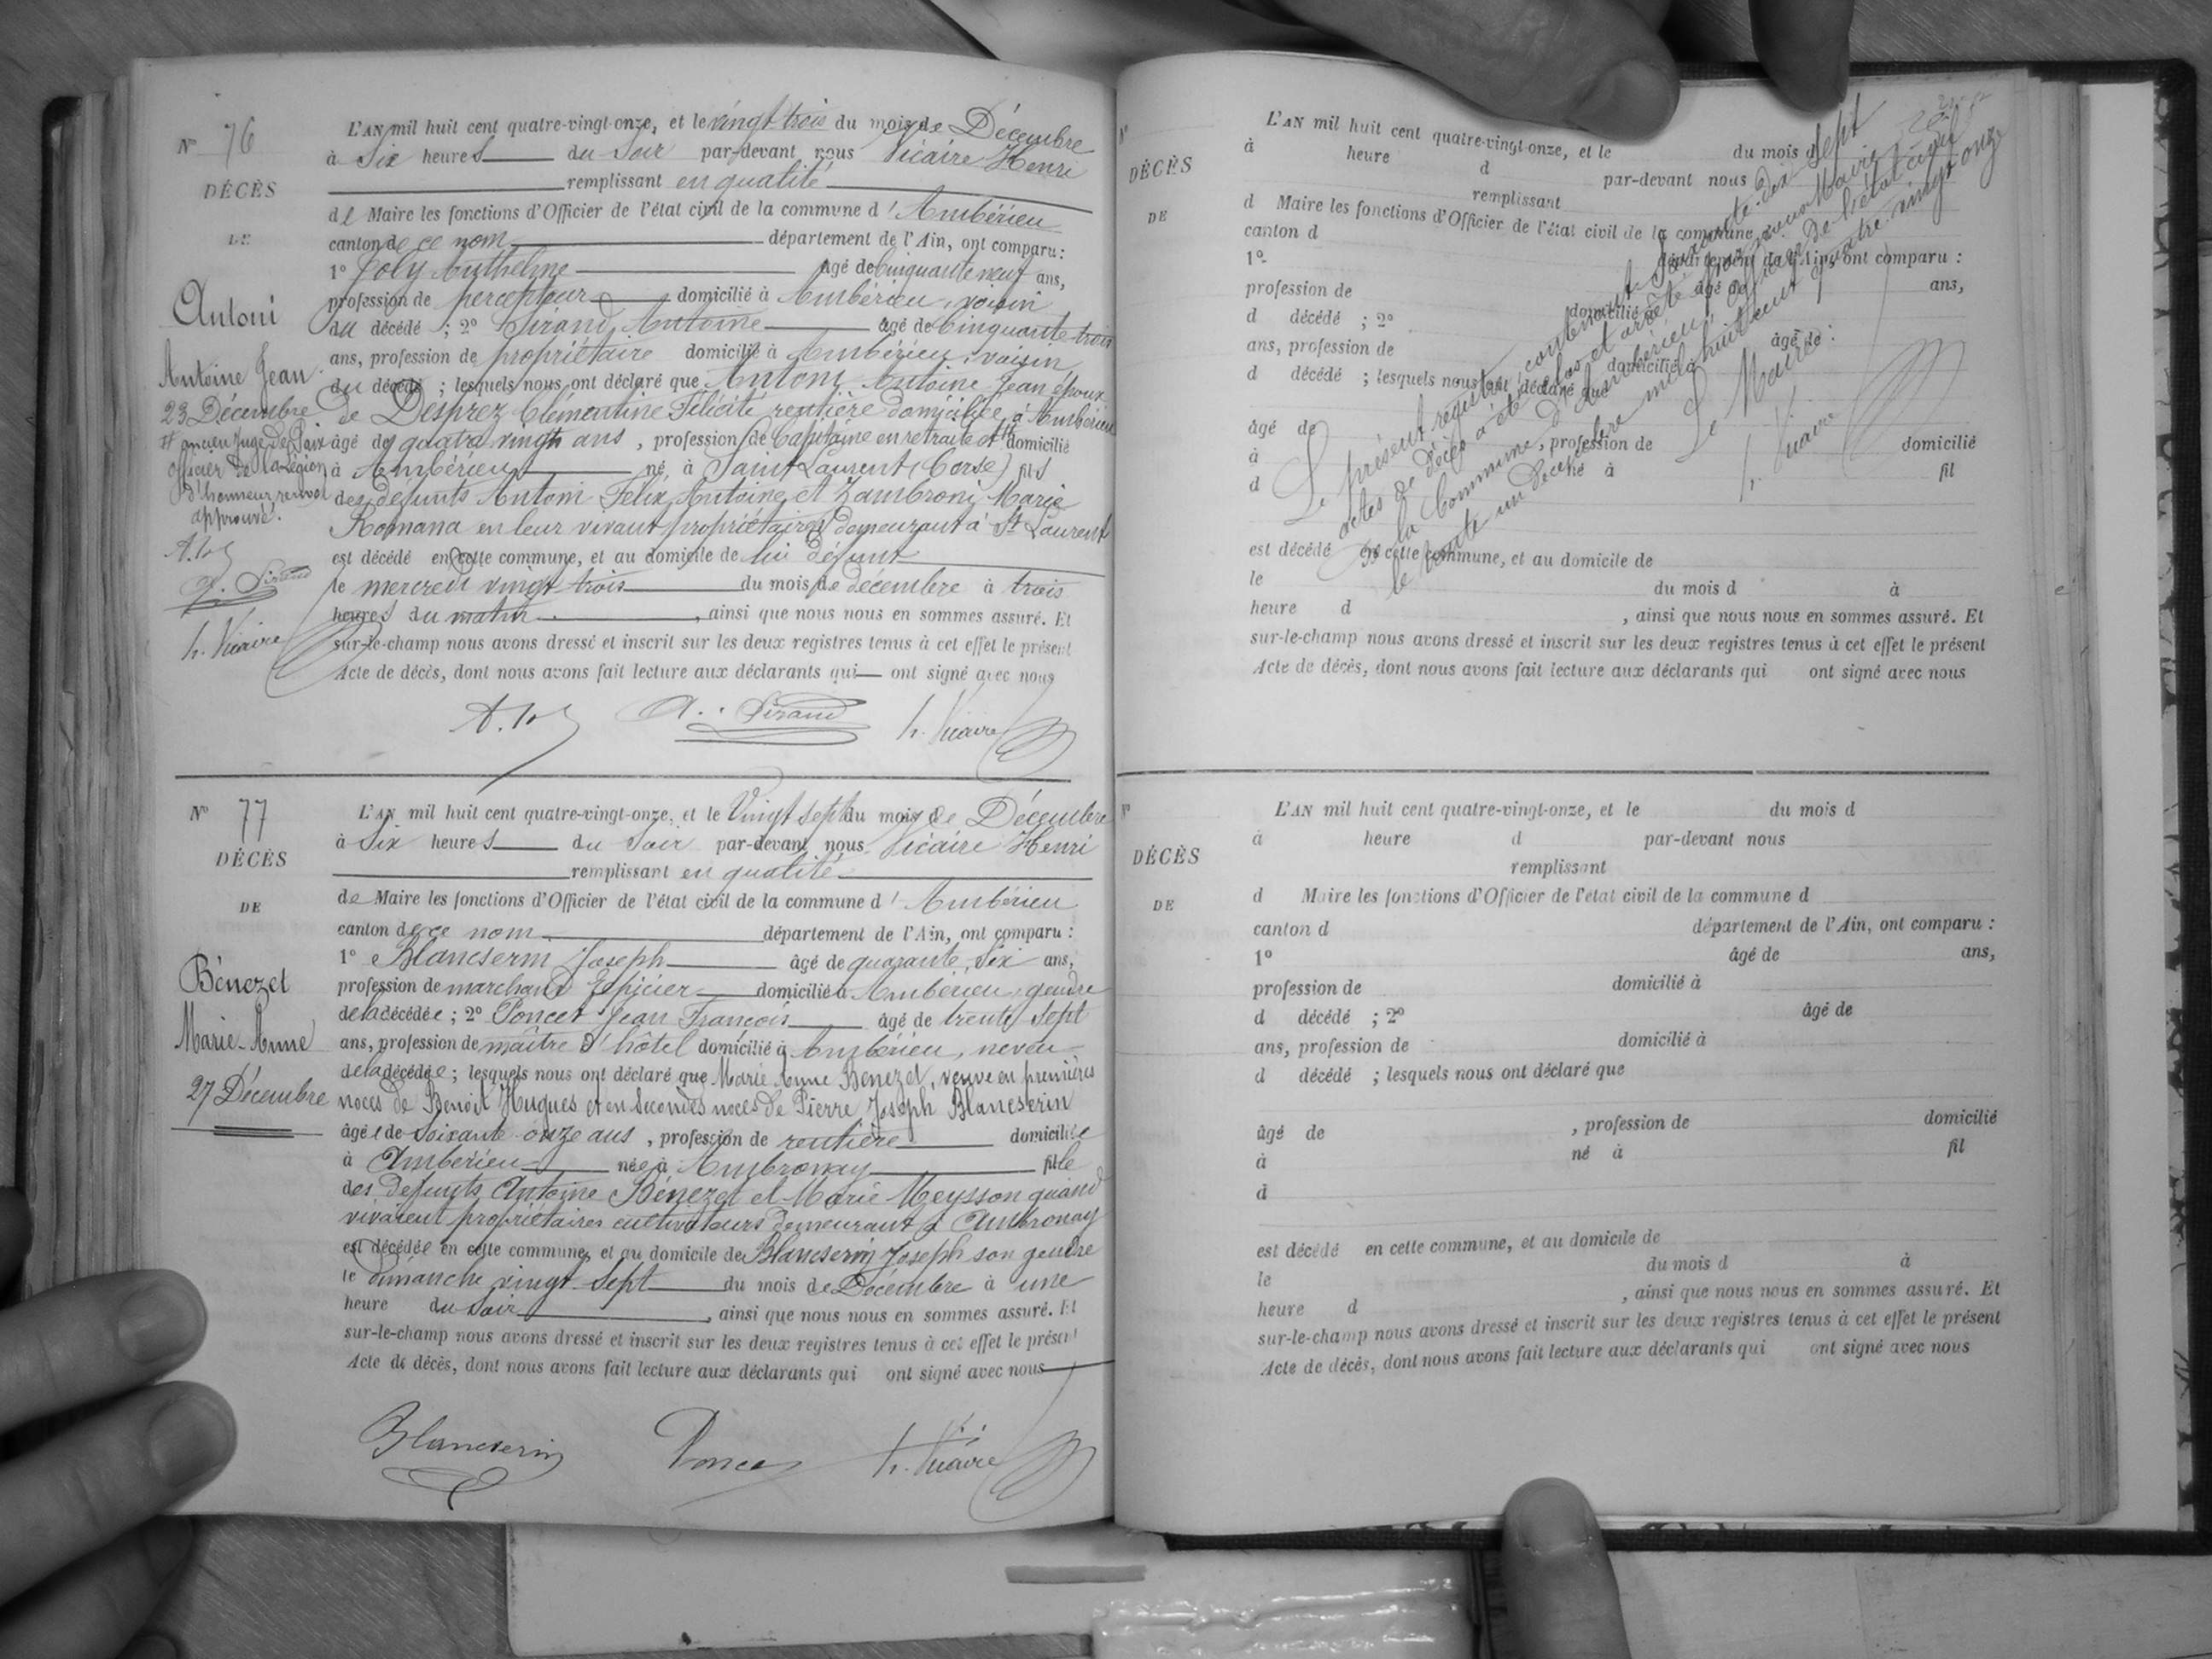 N° 76
DÉCÈS
DE
Antoni
Antoine Jean
23 Décembre
# ancien Juge de Paix
officier de la Légion
d'honneur, renvoi
approuvé.
A. Sirand
h. Vicaire
L'AN mil huit cent quatre-vingt-onze, et le vingt trois du mois de Décembre
à Six heures du Soir par-devant nous Vicaire Henri
remplissant en qualité
de Maire les fonctions d'Officier de l'état civil de la commune d'Ambérieu
canton de ce nom département de l'Ain, ont comparu :
1° Joly Anthelme âgé de Cinquante neuf ans,
profession de percepteur domicilié à Ambérieu, voisin
du décédé ; 2° Sirand Antoine âgé de Cinquante trois
ans, profession de propriétaire domicilié à Ambérieu, voisin
du décédé ; lesquels nous ont déclaré que Antoni Antoine Jean époux
de Desprez Clémentine Félicité rentière domiciliée à Ambérieu
âgé de quatre vingts ans, profession de Capitaine en retraite # domicilié
à Ambérieu né à Saint Laurent (Corse) fils
des défunts Antoni Félix Antoine et Zambroni Marie
Romana en leur vivant propriétaires demeurant à St Laurent
est décédé en cette commune, et au domicile de lui défunt
le mercredi vingt trois du mois de décembre à trois
heures du matin, ainsi que nous nous en sommes assuré. Et
sur-le-champ nous avons dressé et inscrit sur les deux registres tenus à cet effet le présent
Acte de décès, dont nous avons fait lecture aux déclarants qui ont signé avec nous
A. Sirand h. Vicaire
N° 77
DÉCÈS
DE
Bénezet
Marie-Anne
27 Décembre
L'AN mil huit cent quatre-vingt-onze, et le Vingt sept du mois de Décembre
à Six heures du Soir par-devant nous Vicaire Henri
remplissant en qualité
de Maire les fonctions d'Officier de l'état civil de la commune d'Ambérieu
canton de ce nom département de l'Ain, ont comparu :
1° Blancserin Joseph âgé de quarante six ans,
profession de marchand Epicier domicilié à Ambérieu, gendre
de la décédée ; 2° Poncet Jean François âgé de trente sept
ans, profession de maître d'hôtel domicilié à Ambérieu, neveu
de la décédée ; lesquels nous ont déclaré que Marie Anne Benezet, veuve en premières
noces de Benoit Hugues et en Secondes noces de Pierre Joseph Blancserin
âgée de soixante onze ans, profession de rentière domiciliée
à Ambérieu née à Ambronay fille
des défunts Antoine Bénezet et Marie Meysson quand
vivaient propriétaires cultivateurs demeurant à Ambronay
est décédée en cette commune, et au domicile de Blancserin Joseph son gendre
le dimanche vingt sept du mois de Décembre à une
heure du Soir, ainsi que nous nous en sommes assuré. Et
sur-le-champ nous avons dressé et inscrit sur les deux registres tenus à cet effet le présent
Acte de décès, dont nous avons fait lecture aux déclarants qui ont signé avec nous
Blancserin Poncet h. Vicaire
N°
DÉCÈS
DE
L'AN mil huit cent quatre-vingt-onze, et le du mois d
à heure d par-devant nous
remplissant
d Maire les fonctions d'Officier de l'état civil de la commune d
canton d département de l'Ain, ont comparu :
1° âgé de ans,
profession de domicilié à
d décédé ; 2° âgé de
ans, profession de domicilié à
d décédé ; lesquels nous ont déclaré que
âgé de , profession de domicilié
à né à fil
d
est décédé en cette commune, et au domicile de
le du mois d à
heure d , ainsi que nous nous en sommes assuré. Et
sur-le-champ nous avons dressé et inscrit sur les deux registres tenus à cet effet le présent
Acte de décès, dont nous avons fait lecture aux déclarants qui ont signé avec nous
Le présent registre, contenant Soixante-dix sept
actes de décès a été clos et arrêté par nous Maire
de la Commune d'Ambérieu, officier de l'état civil
le trente un Décembre mil huit cent quatre vingt onze
Le Maire :
h. Vicaire
N°
DÉCÈS
DE
L'AN mil huit cent quatre-vingt-onze, et le du mois d
à heure d par-devant nous
remplissant
d Maire les fonctions d'Officier de l'état civil de la commune d
canton d département de l'Ain, ont comparu :
1° âgé de ans,
profession de domicilié à
d décédé ; 2° âgé de
ans, profession de domicilié à
d décédé ; lesquels nous ont déclaré que
âgé de , profession de domicilié
à né à fil
d
est décédé en cette commune, et au domicile de
le du mois d à
heure d , ainsi que nous nous en sommes assuré. Et
sur-le-champ nous avons dressé et inscrit sur les deux registres tenus à cet effet le présent
Acte de décès, dont nous avons fait lecture aux déclarants qui ont signé avec nous